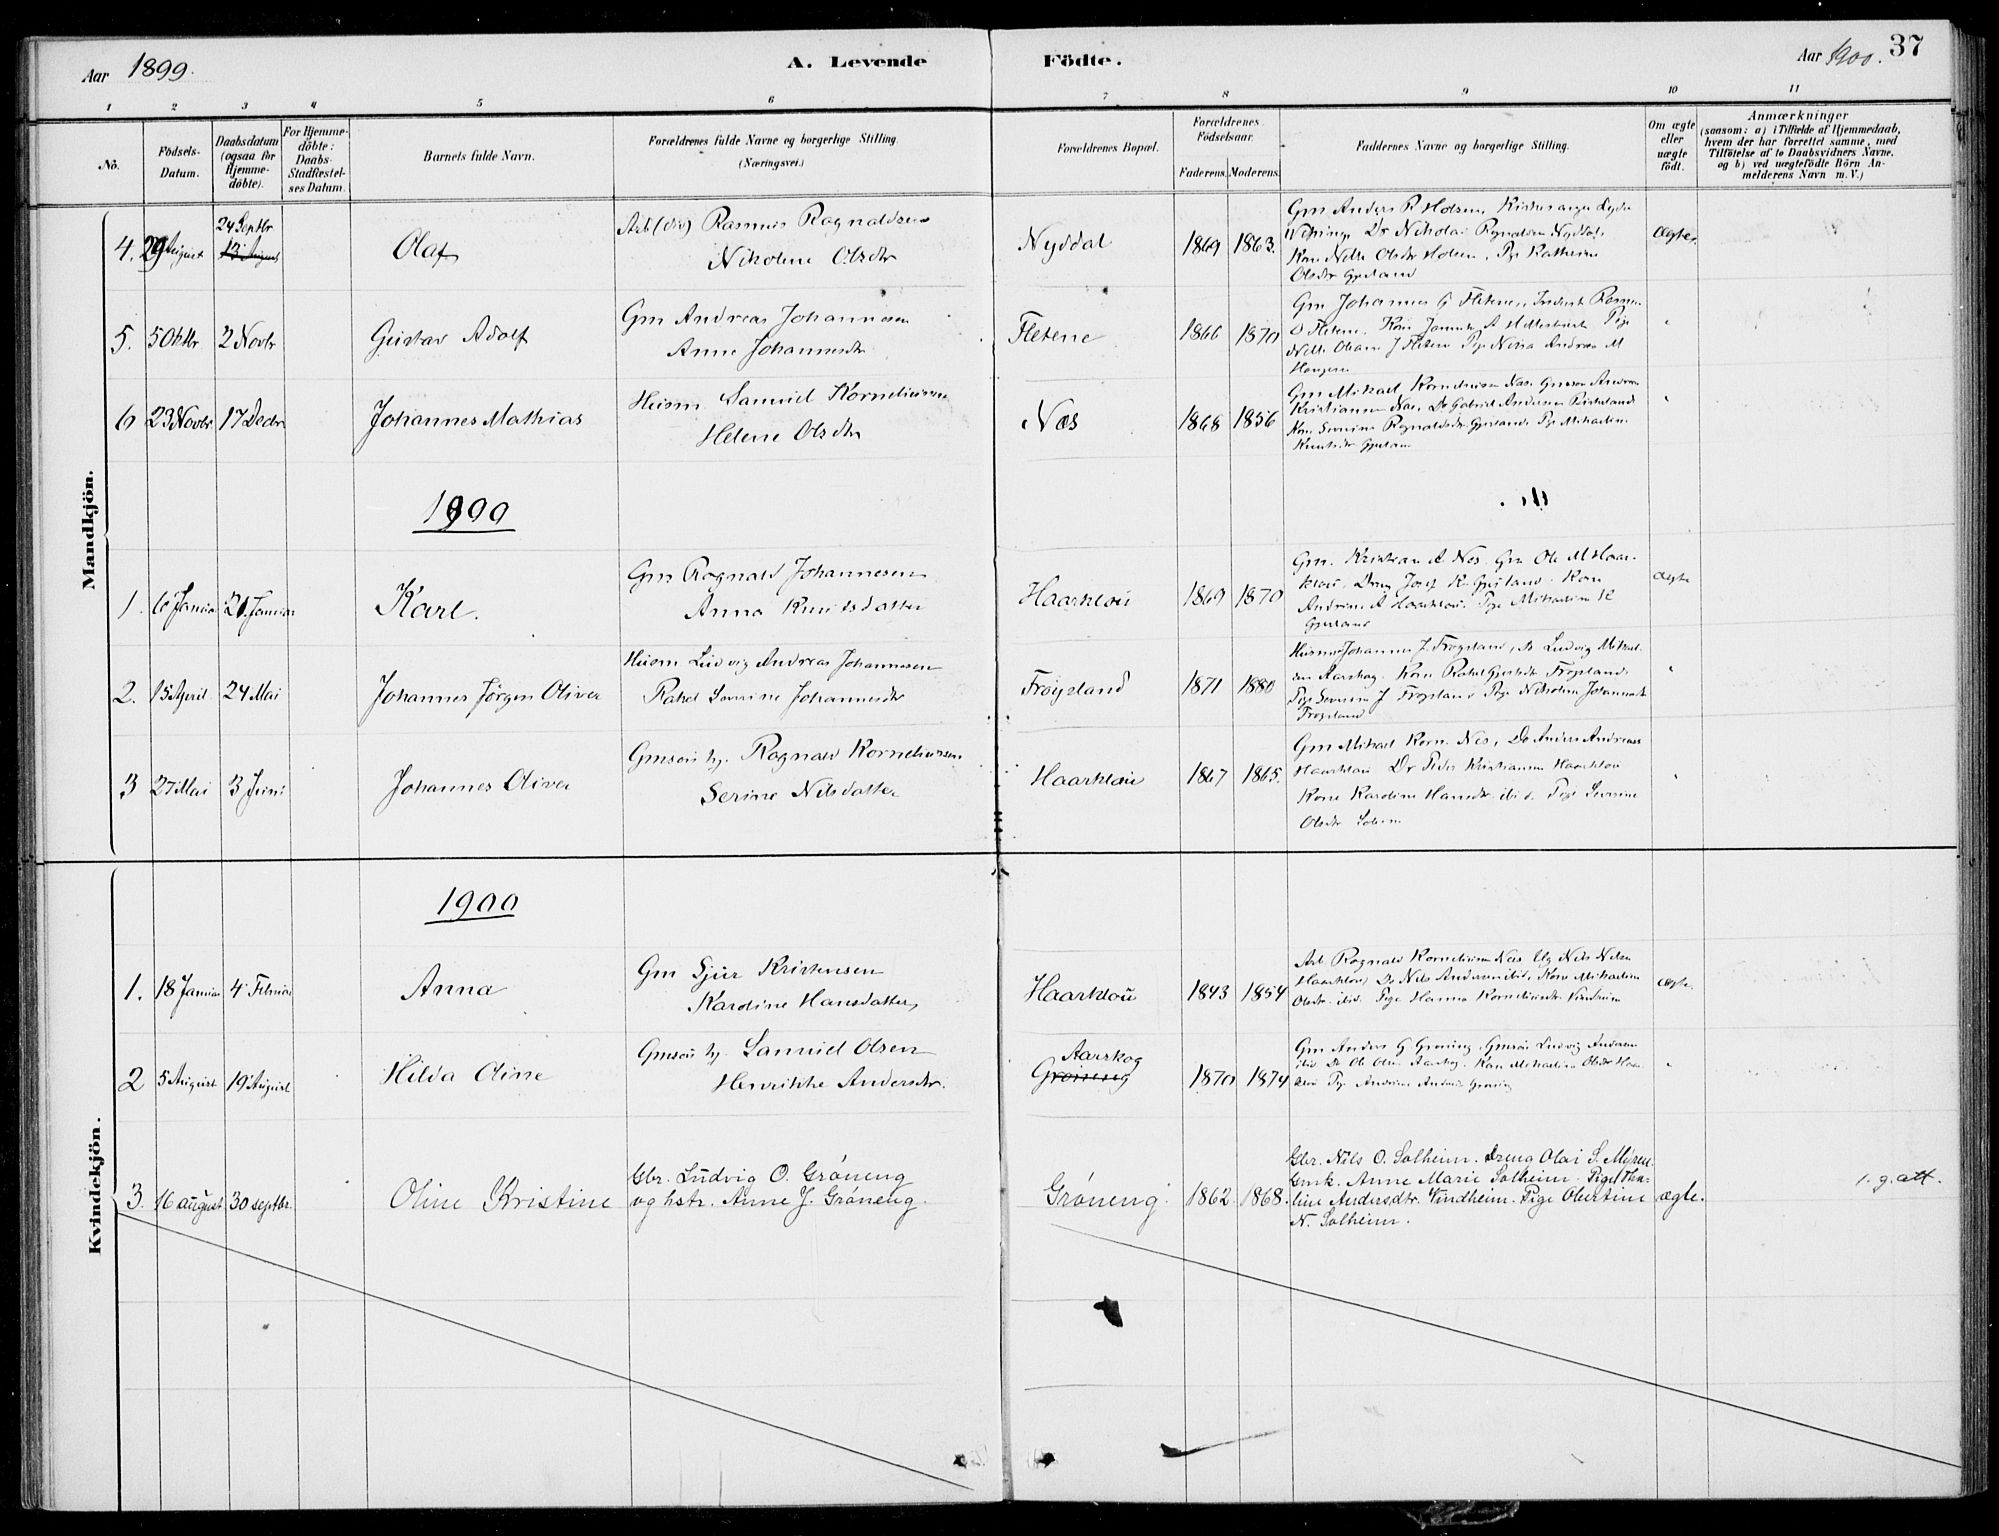 Aar 1899.
A. Levende Födte.
Aar 1900. 37
1 2 3 4 5 6 7 8 9 10 11
No.
Födsels-Datum.
Daabsdatum (ogsaa for Hjemme-döbte).
For Hjemme-döbte: Daabs-Stadfæstel-ses Datum.
Barnets fulde Navn.
Forældrenes fulde Navne og borgerlige Stilling. (Næringsvei.)
Forældrenes Bopæl.
Forældrenes Födselsaar.
Faderens. Moderens.
Faddernes Navne og borgerlige Stilling.
Om ægte eller uægte födt.
Anmærkninger
(saasom: a) i Tilfælde af Hjemmedaab, hvem der har forrettet samme, med Tilföielse af to Daabsvidners Navne. og b) ved uægtefödte Börn Anmelderens Navn m. V.)
Mandkjön.
4. 29 August 24 Septbr 13 August Olaf
Rasmus Ragnaldsen
Nikoline Olsdtr
Nyddal 1869 1863.
Gm Anders R Holsen, Kirkesanger
Dr Nikolai Nyddal,
Kone Olsdtr Holsen, Pige Kathrine
Olsdtr Gjesland
Ægte
5. 5 Oktbr 2 Novbr Gustav Adolf
Gm Andreas Johannesen
Anne Johannesdtr
Fletene 1866 1870
Gm Johannes G Fletene,
O Fletene, Kone
J Fletene Pige
"
6 23 Novbr 17 Decbr Johannes Mathias
Husm. Samuel Korneliussen
Helene Olsdtr
Næs 1868 1856
Gm Mikael Korneliusen Næs
Kristiansen Næs, Dr Gabriel Andersen
Kone Serine Ragnaldsdtr Gjesland, Pige Mikaeline
Knutsdtr
"
1900
1. 6 Januar 21. Januar Karl.
Gm Ragnald Johannesen
Anna Knutsdatter
Haarklou 1869 1870
Gm. Kristian A Næs. Gm Ole M Haarklou, Dreng Josef K. Gjesland. Kone
Andrine A Haarklou. Pige Mikaeline K
Gjesland
Ægte
2. 15 April 24 Mai Johannes Jörgen Oliver
Husm Ludvig Andreas Johannesen
Rakel Severine Johannesdtr
Fröysland 1871 1880
Husm Johannes J. Frøysland, Ludvig Mikael
Aarskog. Kone Rakel Frøysland
Pige Severine J Frøysland Pige Nikoline Johannesdtr
Frøysland
"
3 27 Mai 3 Juni Johannes Oliver
Gmsøn hj. Ragnald Korneliussen
Serine Nilsdatter
Haarklou 1867 1865.
Gm Mikael Korn. Næs, Dr Anders Andreas
Haarklou Dr Peder Kristiansen Haarklou
Kone Kardine Hansdtr ibid. Pige Severine
Olsdtr
"
Kvindekjön.
1900
1. 18 Januar 4 Februar Anna
Gm Sjur Kristensen
Kardine Hansdatter,
Haarklou 1843 1854
Arb. Ragnald Korneliusen Næs Nils Nilsen
Haarklou, Dr Nils Andersen ibid, Kone Mikaeline
Olsdtr ibid. Pige Hanna Korneliusdtr Vindheim
Ægte.
2 5 August 19 August Hilda Oline
Gmsøn hj. Samuel Olsen
Henrikke Andersdtr.
Aarskog Grøneng 1870 1874
Gm Anders G Grøneng, Gmsøn Ludvig Andersen
ibid Dr Ole Olsen Aarskog. Kone Mikaeline Olsdtr Haarklou Pige Andrine Grøneng
"
3. 16 august 30 septbr. Oline Kristine
Gbr. Ludvig O. Grøneng
og hstr. Anne J. Grøneng.
Grøneng. 1862 1868.
Gbr. Nils O. Solheim. Dreng Olai S. Myren.
Gmk. Anne Marie Solheim. Pige Thaline Andersdtr. Vindheim. Pige Obertine
N. Solheim.
ægte.
1. g. att.